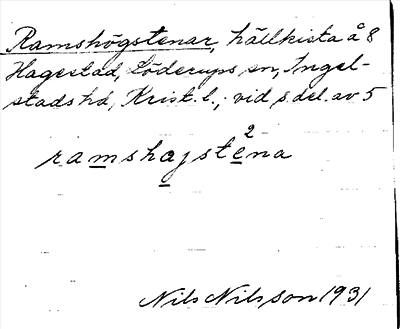 Ramshögstenar, hällkista å 8
Hagestad, Löderups sn, Ingel-
stads hd, Krist. l., vid s. del. av 5
2
ramshajstena
Nils Nilsson 1931